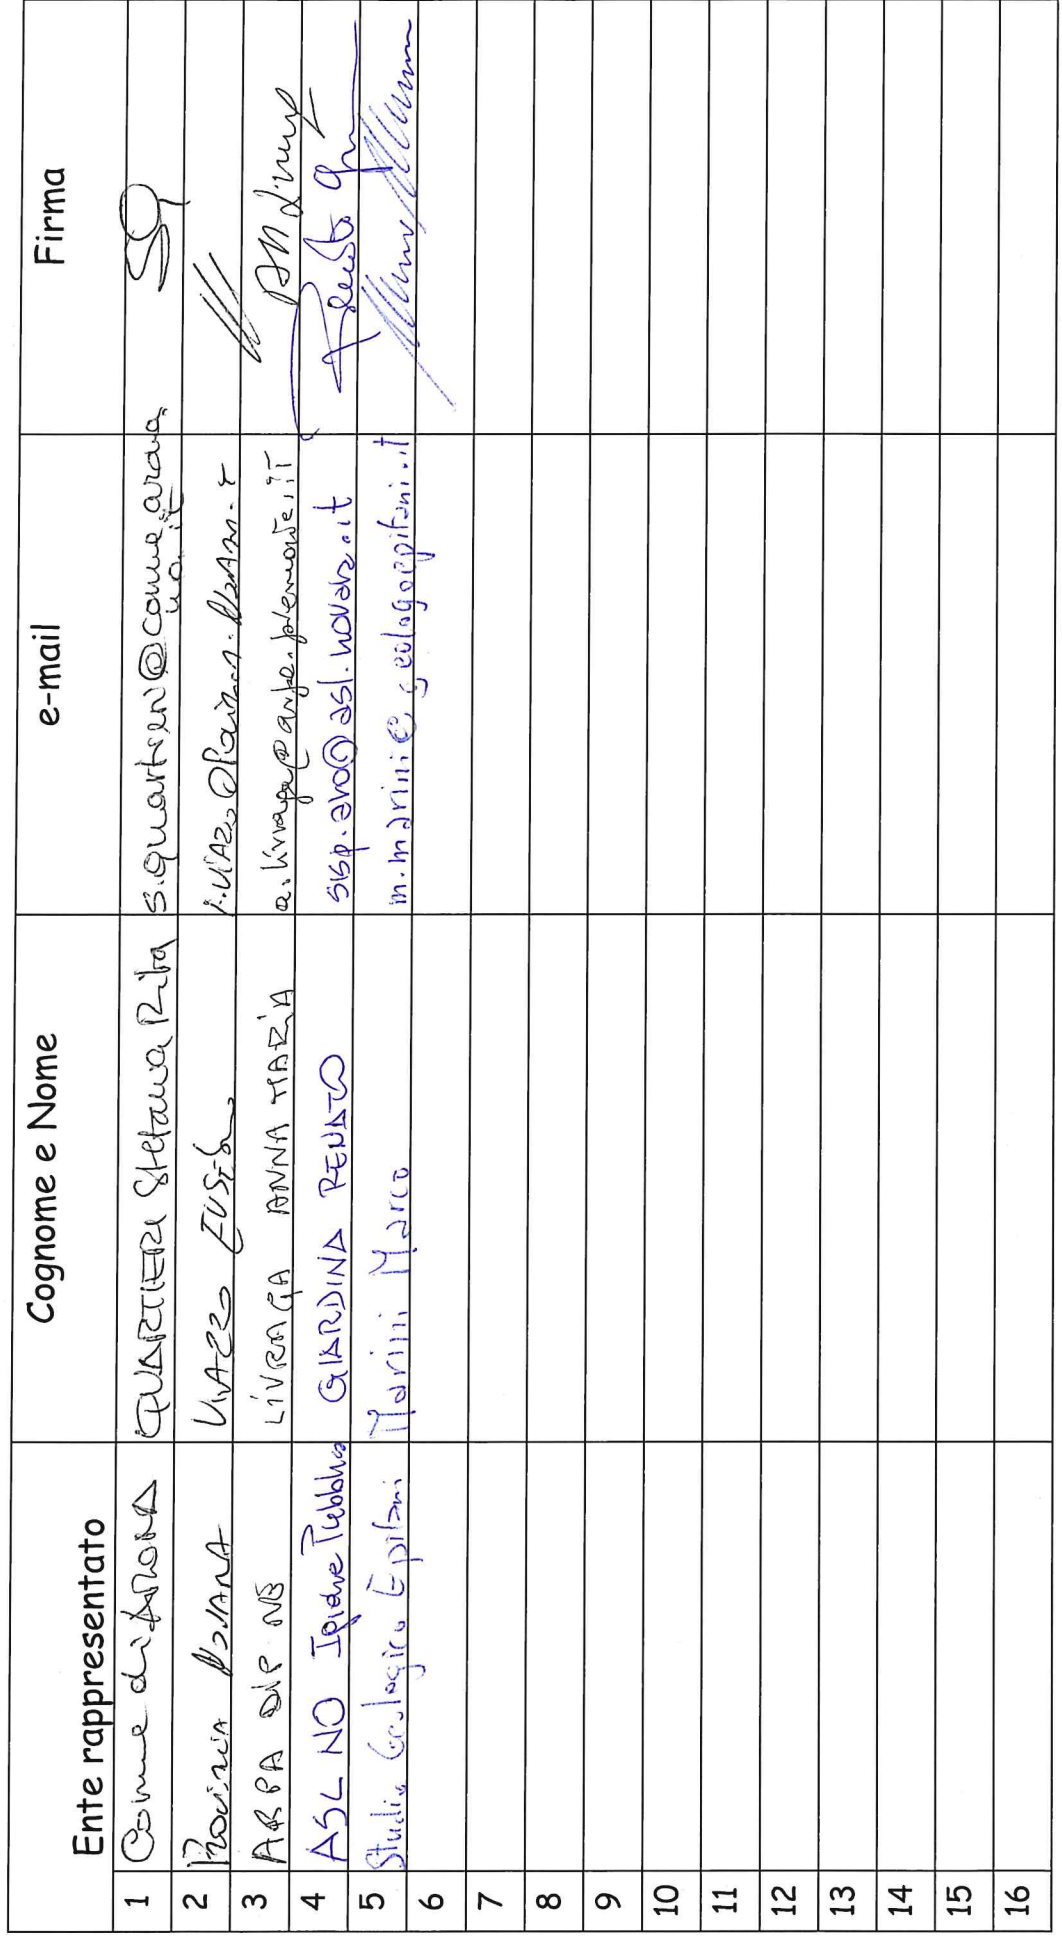 Ente rappresentato Cognome e Nome e-mail Firma
1 Comune di ARONA QUARTIERI Stefania Rita s.quartieri@comune.arona.
no.it
2 Provincia NOVARA VIAZZO
3 ARPA DIP NE LIVRAGA ANNA MARIA a.livraga@arpa.piemonte.it
4 ASL NO Igiene Pubblica GIARDINA RENATO sisp.aro@asl.novara.it
5 Studio Geologico Epifani Marini Marco m.marini@geologoepifani.it
6
7
8
9
10
11
12
13
14
15
16